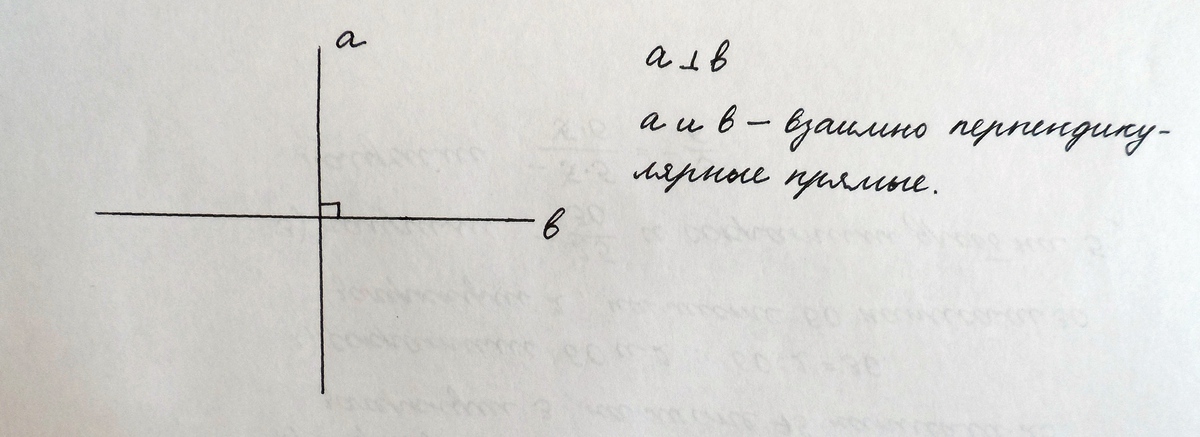 a
a ⊥ в
a и в — взаимно перпендику-
лярные прямые.
в